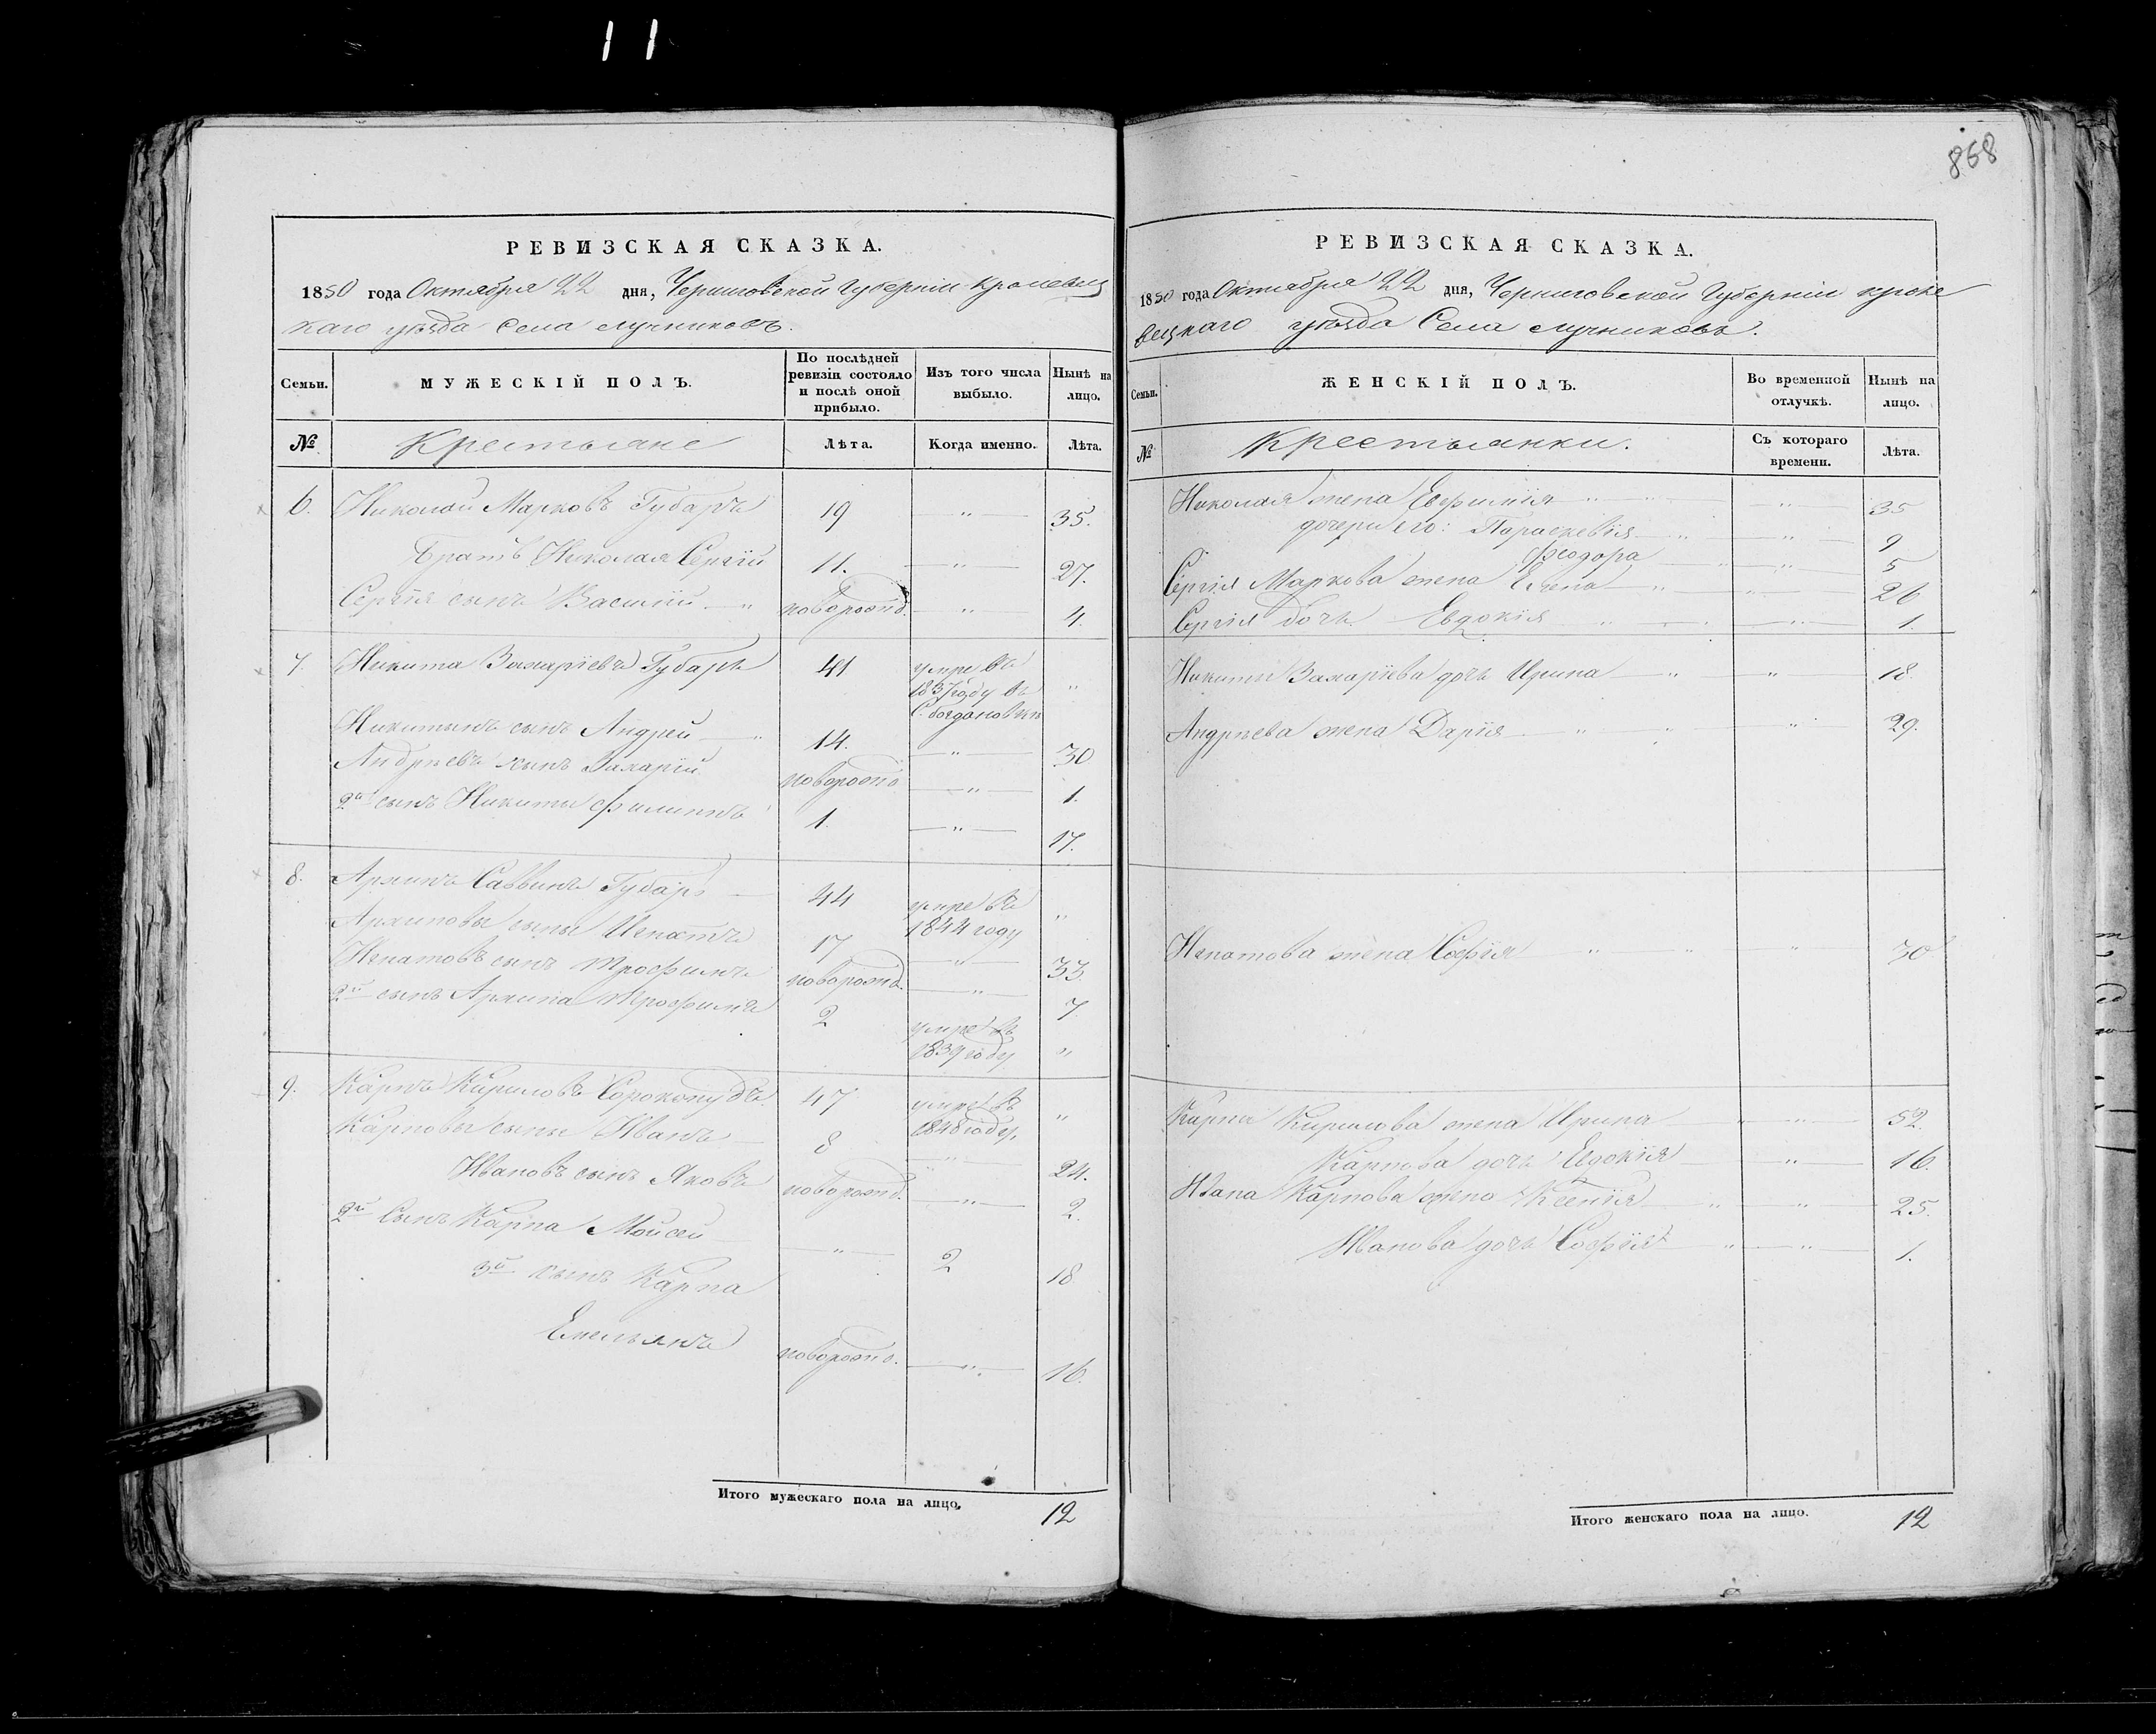 11
868
РЕВИЗСКАЯ СКАЗКА.
1850 года Октября 22 дня, Черниговской Губерніи Кролевец
каго уѣзда Села Лучниковъ.
Семьи.
МУЖЕСКІЙ ПОЛЪ.
По послѣдней ревизіи состояло и послѣ оной прибыло.
Изъ того числа выбыло.
Нынѣ на лицо.
№ Крестьяне Лѣта. Когда именно. Лѣта.
6. Николай Марковъ Губарь 19 — " — 35.
Братъ Николая Сергій 11. — " — 27.
Сергія сынъ Василій " новорожд. — " — 4.
7. Никита Захаріевъ Губарь 41 умре въ 1837 году въ "
Никитинъ сынъ Андрей " 14. — " — 30
Андреевъ сынъ Захарій новорожд — " — 1.
2й сынъ Никиты Филиппъ 1. — " — 17.
8. Архипъ Саввинъ Губарь 44 умре въ 1844 году "
Архиповы сыны Игнатъ 17 — " — 33.
Игнатовъ сынъ Трофимъ новорожд. — " — 7
2й сынъ Архипа Трофимъ 2 умре въ 1839 году "
9. Карпъ Кириловъ Сорокопудъ 47 умре въ 1848 году, "
Карповы сыны Иванъ 8 — " — 24.
Ивановъ сынъ Яковъ новорожд. — " — 2.
2й Сынъ Карпа Мойсей — " — 2 18
3й сынъ Карпа
Емельянъ новорожд. — " — 16.
Итого мужескаго пола на лицо, 12
РЕВИЗСКАЯ СКАЗКА.
1850 года Октября 22 дня, Черниговской Губерніи Кроле
вецкаго уѣзда Села Лучниковъ.
Семьи.
ЖЕНСКІЙ ПОЛЪ.
Во временной отлучкѣ.
Нынѣ на лицо.
№ Крестьянки. Съ котораго времени. Лѣта.
Николая жена Евфимія " — " — 35
дочери его: Параскевія " — " — 9
Феодора " — " — 5
Сергія Маркова жена Елена " — " — 26
Сергія дочь Евдокія " — " — 1.
Никиты Захаріева дочь Ирина " — " — 18.
Андреева жена Дарія " — " — 29.
Игнатова жена Софія " — " — 30
Карпа Кирилова жена Ирина " — " — 52.
Карпова дочь Евдокія — " — 16.
Ивана Карпова жена Ксенія " — " — 25.
Иванова дочь Софія " — " — 1.
Итого женскаго пола на лицо. 12